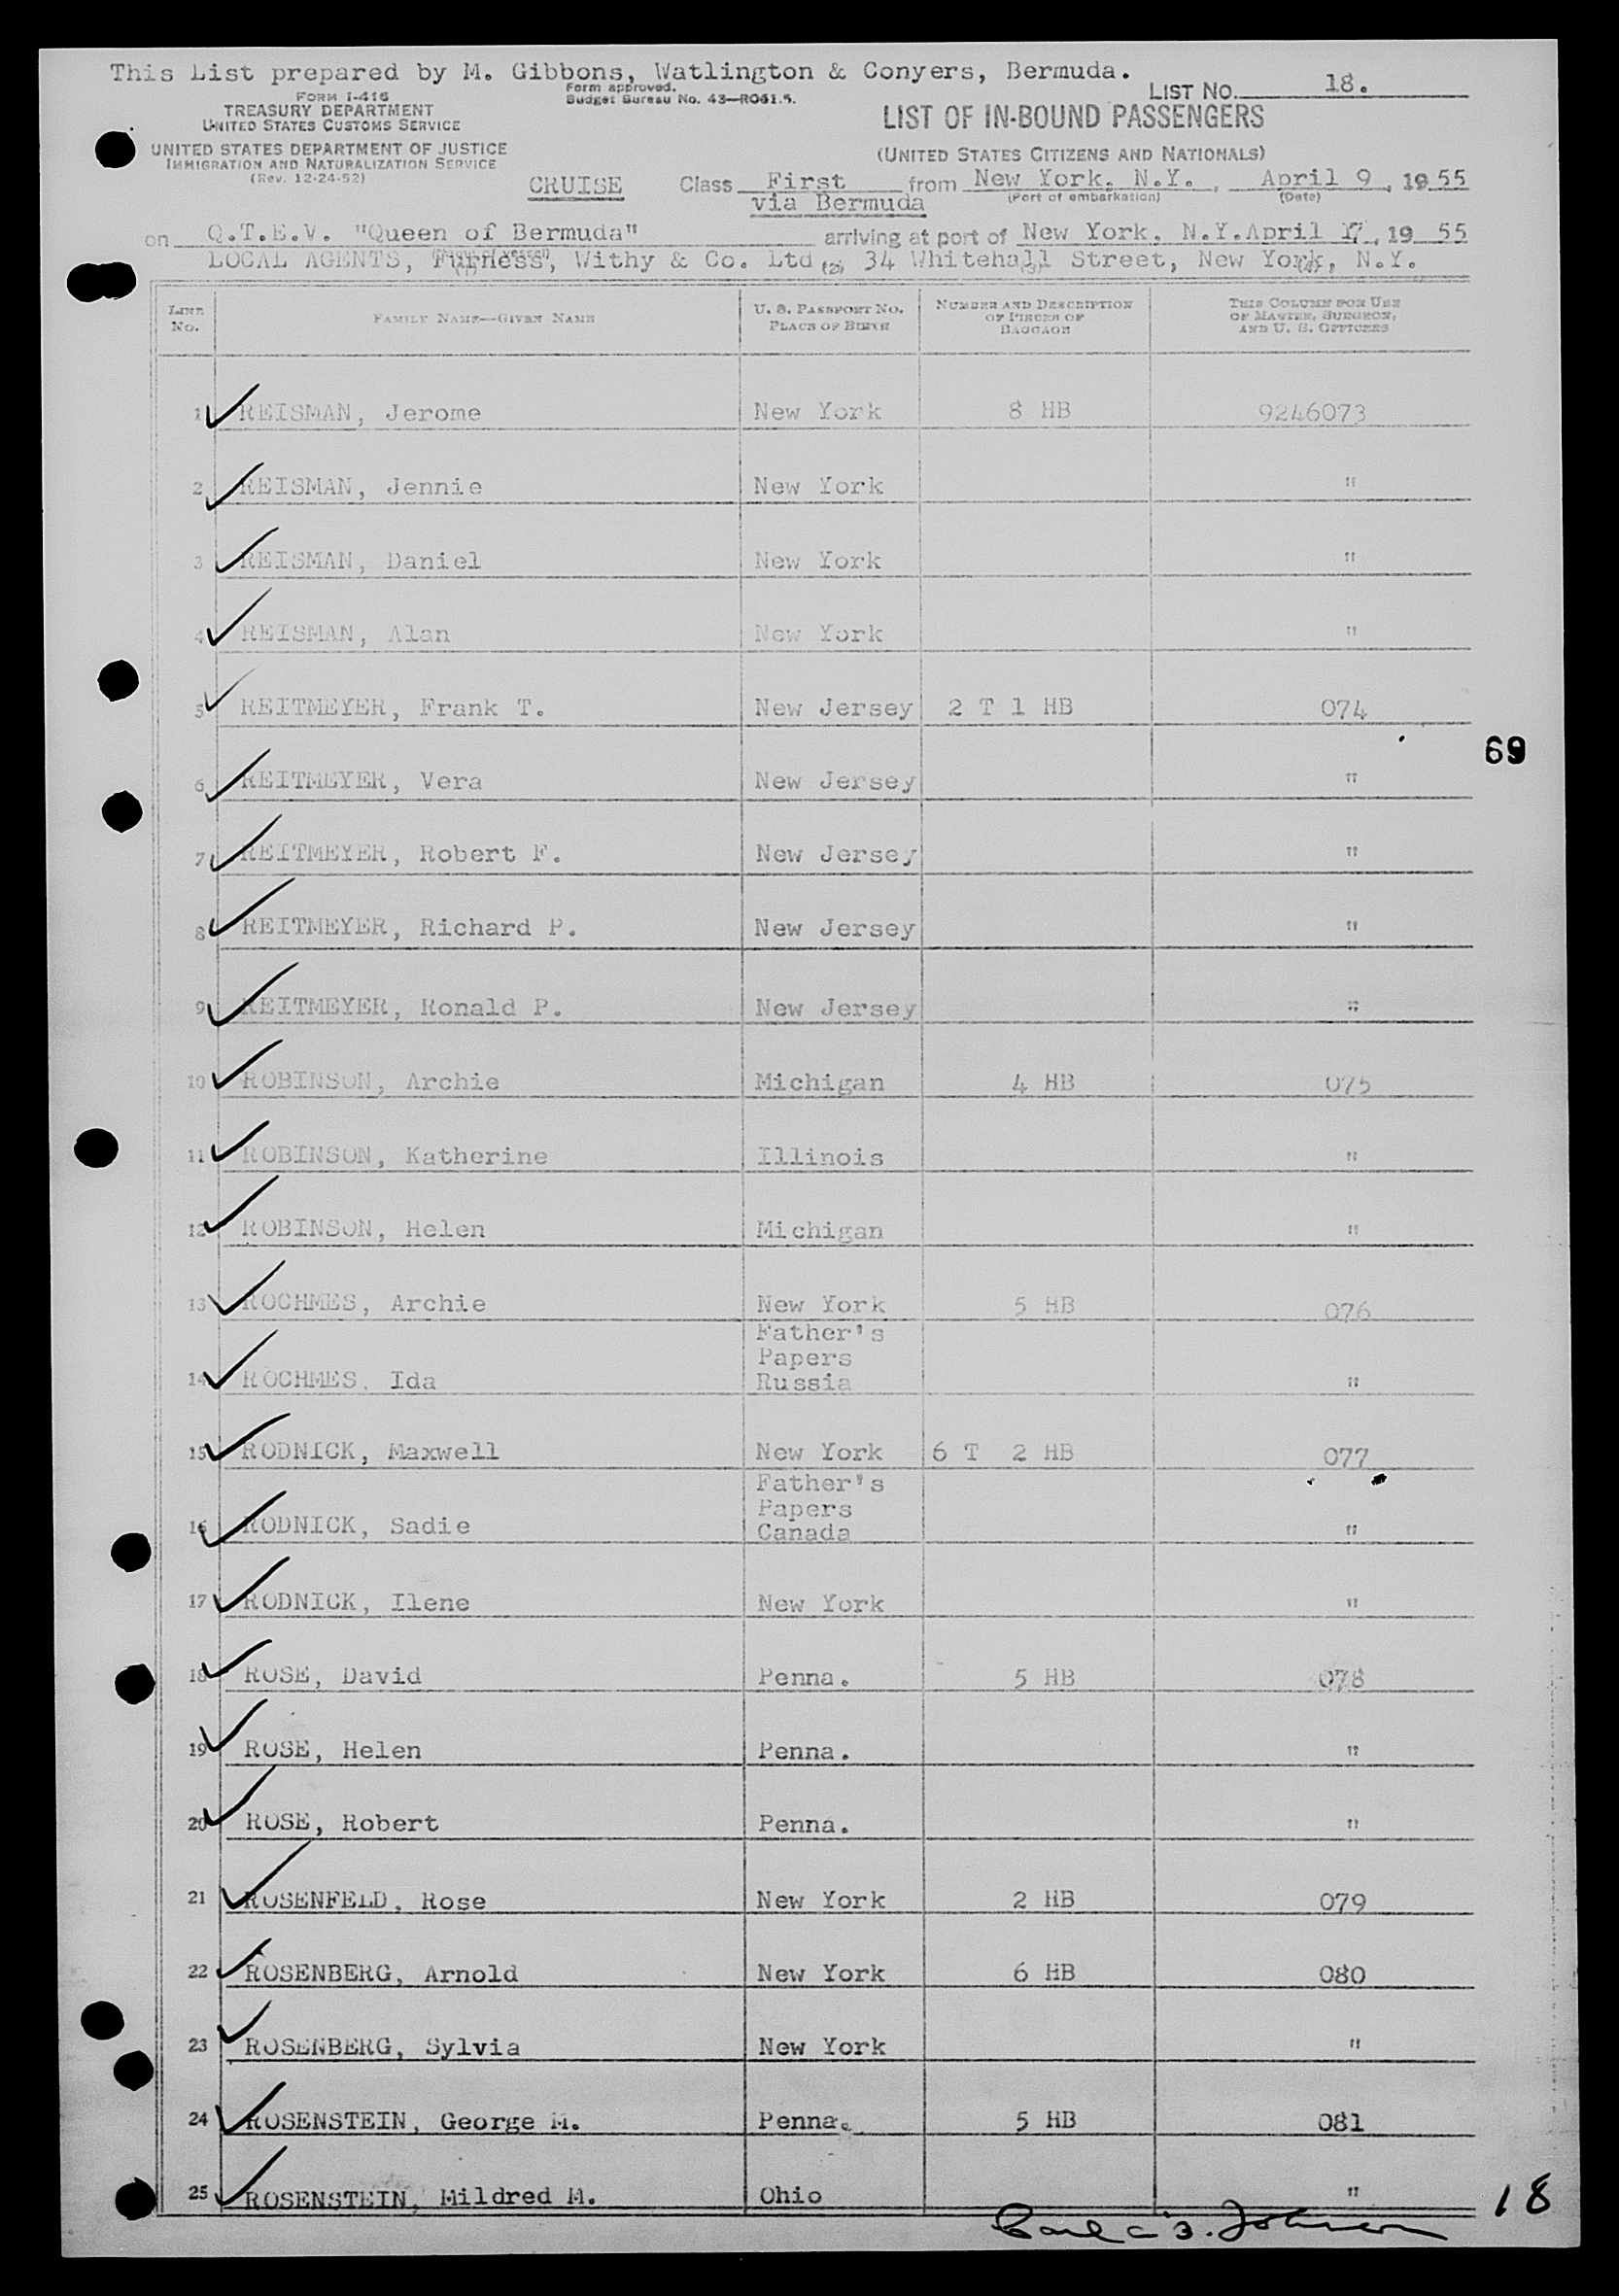 This List prepared by M. Gibbons, Watlington & Conyers, Bermuda.
LIST NO. 18.
FORM I-416
Form approved.
Budget Bureau No. 43—R061.5.
TREASURY DEPARTMENT
UNITED STATES CUSTOMS SERVICE
LIST OF IN-BOUND PASSENGERS
UNITED STATES DEPARTMENT OF JUSTICE
IMMIGRATION AND NATURALIZATION SERVICE
(Rev. 12-24-52)
(UNITED STATES CITIZENS AND NATIONALS)
CRUISE Class First from New York, N.Y., April 9, 1955
via Bermuda (Port of embarkation) (Date)
on Q.T.E.V. "Queen of Bermuda" arriving at port of New York, N.Y. April 17, 19 55
LOCAL AGENTS, Furness, Withy & Co. Ltd (2) 34 Whitehall Street, New York, N.Y.
LINE No. FAMILY NAME—GIVEN NAME U. S. PASSPORT NO. PLACE OF BIRTH NUMBER AND DESCRIPTION OF PIECES OF BAGGAGE THIS COLUMN FOR USE OF MASTER, SURGEON, AND U. S. OFFICERS
1 REISMAN, Jerome New York 8 HB 9246073
2 REISMAN, Jennie New York "
3 REISMAN, Daniel New York "
4 REISMAN, Alan New York "
5 REITMEYER, Frank T. New Jersey 2 T 1 HB 074
69
6 REITMEYER, Vera New Jersey "
7 REITMEYER, Robert F. New Jersey "
8 REITMEYER, Richard P. New Jersey "
9 REITMEYER, Ronald P. New Jersey "
10 ROBINSON, Archie Michigan 4 HB 075
11 ROBINSON, Katherine Illinois "
12 ROBINSON, Helen Michigan "
13 ROCHMES, Archie New York 5 HB 076
Father's
Papers
14 ROCHMES, Ida Russia "
15 RODNICK, Maxwell New York 6 T 2 HB 077
Father's
Papers
16 RODNICK, Sadie Canada "
17 RODNICK, Ilene New York "
18 ROSE, David Penna. 5 HB 078
19 ROSE, Helen Penna. "
20 ROSE, Robert Penna. "
21 ROSENFELD, Rose New York 2 HB 079
22 ROSENBERG, Arnold New York 6 HB 080
23 ROSENBERG, Sylvia New York "
24 ROSENSTEIN, George M. Penna. 5 HB 081
25 ROSENSTEIN, Mildred M. Ohio "
18